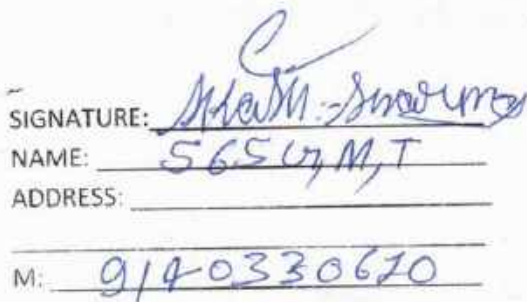 SIGNATURE:
NAME: 565 G, M, T
ADDRESS:
M: 9140330610